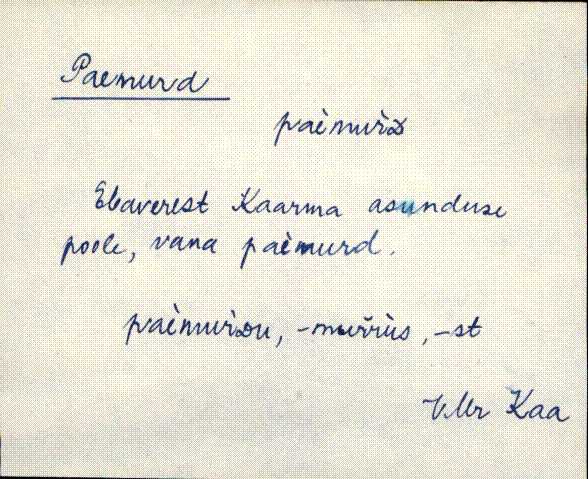 Paemurd
pàemuŕᴅ
Ebaverest Kaarma asunduse
poole, vana pàemurd.
pàemuŕᴅu, -muŕrùs, -st
V.Mr Kaa